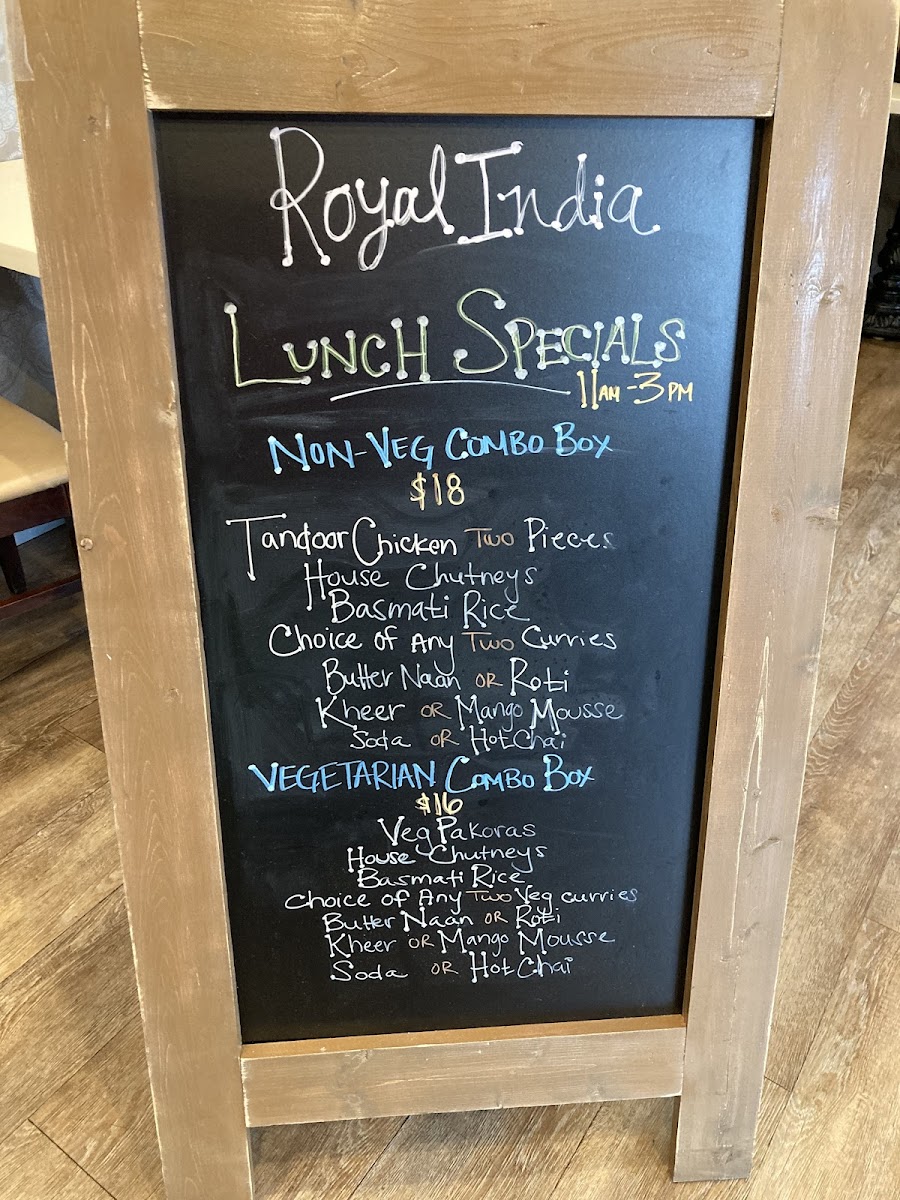 Royal India
LUNCH SPECIALS
11AM-3PM
NON-VEG COMBO BOX
$18
Tandoor Chicken Two Pieces
House Chutneys
Basmati Rice
Choice of Any Two Curries
Butter Naan OR Roti
Kheer OR Mango Mousse
Soda OR Hot Chai
VEGETARIAN COMBO BOX
$16
Veg Pakoras
House Chutneys
Basmati Rice
Choice of Any Two Veg curries
Butter Naan OR Roti
Kheer OR Mango Mousse
Soda OR Hot Chai